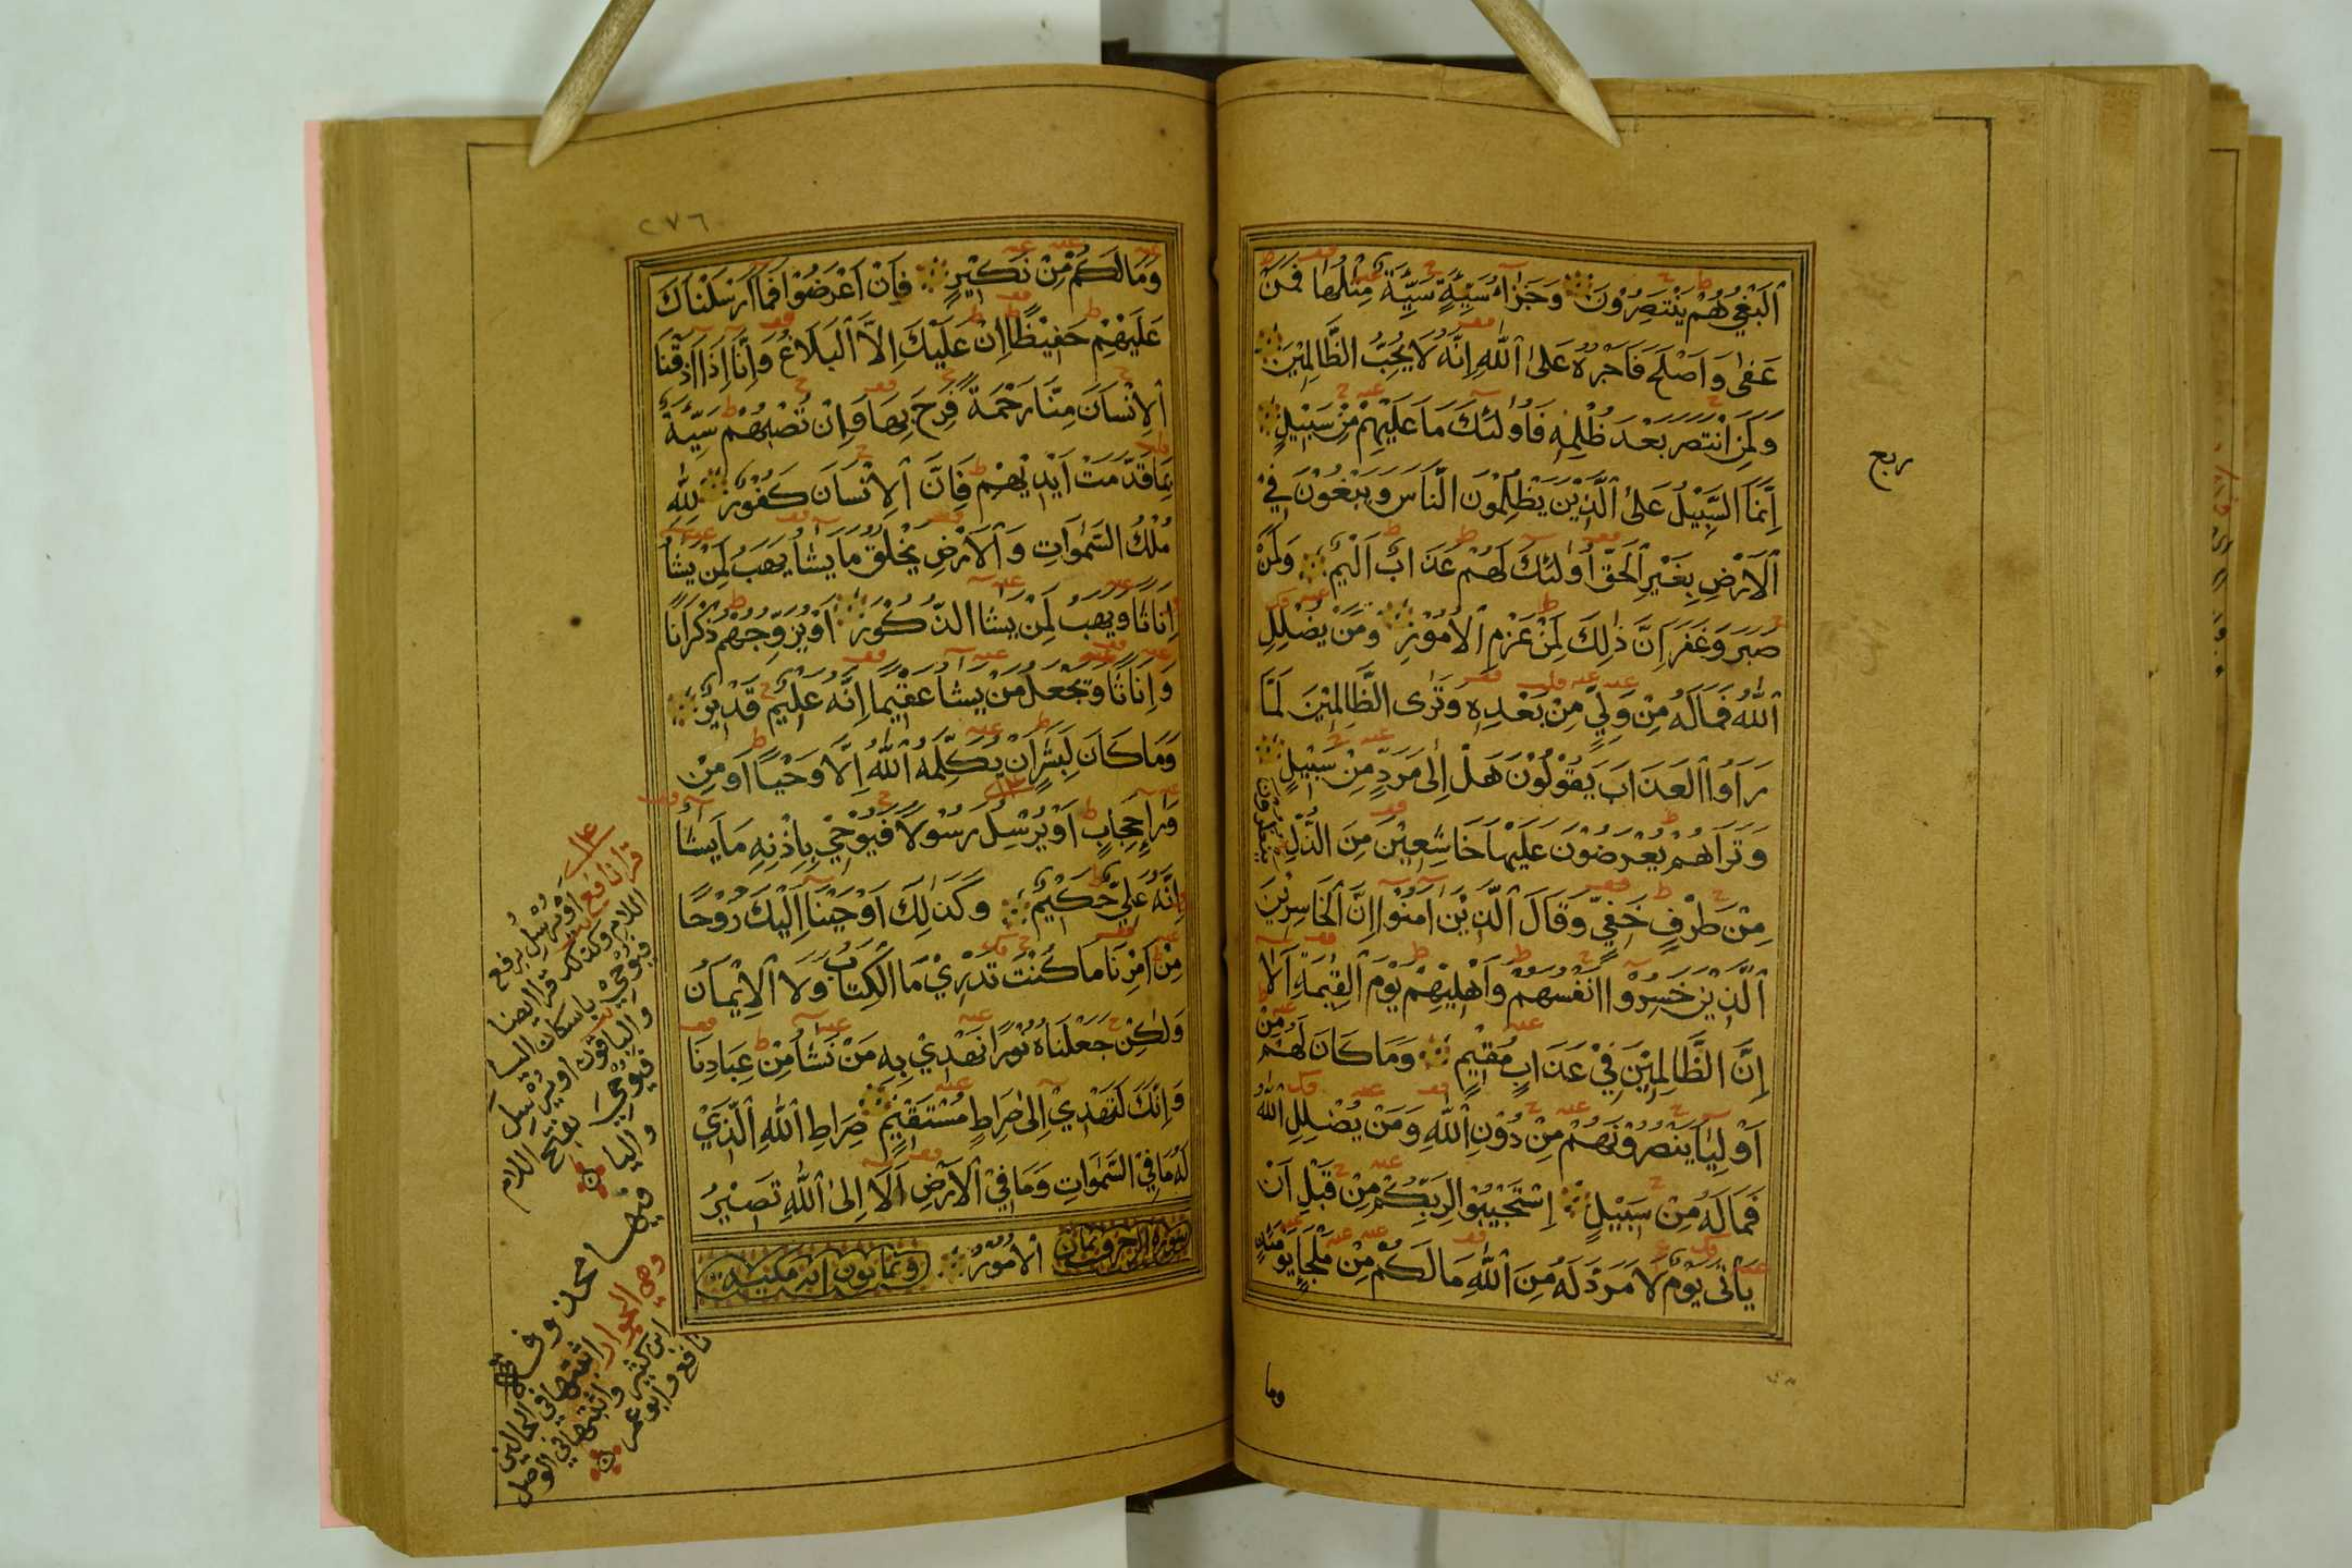 ٱلْبَغْيُ هُمْ يَنْتَصِرُوْنَ وَجَزٰٓاءُ سَيِّئَةٍ سَيِّئَةٌ مِثْلُهَا فَمَنْ
عَفٰى وَاَصْلَحَ فَاَجْرُهٗ عَلَى ٱللّٰهِ اِنَّهٗ لَا يُحِبُّ الظَّالِمِيْنَ
وَلَمَنِ انْتَصَرَ بَعْدَ ظُلْمِهٖ فَاُولٰئِكَ مَا عَلَيْهِمْ مِنْ سَبِيْلٍ
اِنَّمَا السَّبِيْلُ عَلَى ٱلَّذِيْنَ يَظْلِمُوْنَ النَّاسَ وَيَبْغُوْنَ فِي
ٱلْاَرْضِ بِغَيْرِ ٱلْحَقِّ اُولٰئِكَ لَهُمْ عَذَابٌ اَلِيْمٌ وَلَمَنْ
صَبَرَ وَغَفَرَ اِنَّ ذٰلِكَ لَمِنْ عَزْمِ ٱلْاُمُوْرِ وَمَنْ يُضْلِلِ
ٱللّٰهُ فَمَا لَهٗ مِنْ وَلِيٍّ مِنْ بَعْدِهٖ وَتَرَى الظَّالِمِيْنَ لَمَّا
رَاَوُا ٱلْعَذَابَ يَقُوْلُوْنَ هَلْ اِلٰى مَرَدٍّ مِنْ سَبِيْلٍ
وَتَرَاهُمْ يُعْرَضُوْنَ عَلَيْهَا خَاشِعِيْنَ مِنَ الذُّلِّ يَنْظُرُوْنَ
مِنْ طَرْفٍ خَفِيٍّ وَقَالَ ٱلَّذِيْنَ اٰمَنُوْا اِنَّ ٱلْخَاسِرِيْنَ
ٱلَّذِيْنَ خَسِرُوْا اَنْفُسَهُمْ وَاَهْلِيْهِمْ يَوْمَ ٱلْقِيٰمَةِ اَلَا
اِنَّ الظَّالِمِيْنَ فِيْ عَذَابٍ مُقِيْمٍ وَمَا كَانَ لَهُمْ مِنْ
اَوْلِيَاءَ يَنْصُرُوْنَهُمْ مِنْ دُوْنِ ٱللّٰهِ وَمَنْ يُضْلِلِ ٱللّٰهُ
فَمَا لَهٗ مِنْ سَبِيْلٍ اِسْتَجِيْبُوْا لِرَبِّكُمْ مِنْ قَبْلِ اَنْ
يَاْتِيَ يَوْمٌ لَا مَرَدَّ لَهٗ مِنَ ٱللّٰهِ مَا لَكُمْ مِنْ مَلْجَاٍ يَوْمَئِذٍ
ربع
وما
٢٧٦
وَمَا لَكُمْ مِنْ نَكِيْرٍ فَاِنْ اَعْرَضُوْا فَمَا اَرْسَلْنَاكَ
عَلَيْهِمْ حَفِيْظًا اِنْ عَلَيْكَ اِلَّا ٱلْبَلَاغُ وَاِنَّا اِذَا اَذَقْنَا
ٱلْاِنْسَانَ مِنَّا رَحْمَةً فَرِحَ بِهَا وَاِنْ تُصِبْهُمْ سَيِّئَةٌ
بِمَا قَدَّمَتْ اَيْدِيْهِمْ فَاِنَّ ٱلْاِنْسَانَ كَفُوْرٌ لِلّٰهِ
مُلْكُ السَّمٰوَاتِ وَٱلْاَرْضِ يَخْلُقُ مَا يَشَاءُ يَهَبُ لِمَنْ يَشَاءُ
اِنَاثًا وَيَهَبُ لِمَنْ يَشَاءُ الذُّكُوْرَ اَوْ يُزَوِّجُهُمْ ذُكْرَانًا
وَاِنَاثًا وَيَجْعَلُ مَنْ يَشَاءُ عَقِيْمًا اِنَّهٗ عَلِيْمٌ قَدِيْرٌ
وَمَا كَانَ لِبَشَرٍ اَنْ يُكَلِّمَهُ ٱللّٰهُ اِلَّا وَحْيًا اَوْ مِنْ
وَرَاءِ حِجَابٍ اَوْ يُرْسِلُ رَسُوْلًا فَيُوْحِيْ بِاِذْنِهٖ مَا يَشَاءُ
اِنَّهٗ عَلِيٌّ حَكِيْمٌ وَكَذٰلِكَ اَوْحَيْنَا اِلَيْكَ رُوْحًا
مِنْ اَمْرِنَا مَا كُنْتَ تَدْرِيْ مَا ٱلْكِتَابُ وَلَا ٱلْاِيْمَانُ
وَلٰكِنْ جَعَلْنَاهُ نُوْرًا نَهْدِيْ بِهٖ مَنْ نَشَاءُ مِنْ عِبَادِنَا
وَاِنَّكَ لَتَهْدِيْ اِلٰى صِرَاطٍ مُسْتَقِيْمٍ صِرَاطِ ٱللّٰهِ ٱلَّذِيْ
لَهٗ مَا فِي السَّمٰوَاتِ وَمَا فِي ٱلْاَرْضِ اَلَا اِلَى ٱللّٰهِ تَصِيْرُ
سورة الزخرف ثمان ٱلْاُمُوْرُ وثمانون اية مكية
قرا نافع اَوْ يُرْسِلُ برفع
اللام وكذلك قرا ايضا
فيوحِيْ باسكان اليا
والباقون او يرسلَ
فيوحِيَ بفتح اللام
واليا
فيها محذوفة
وهي الجوار اثبتها في الحالين
ابن كثير واثبتها في الوصل
نافع وابو عمر